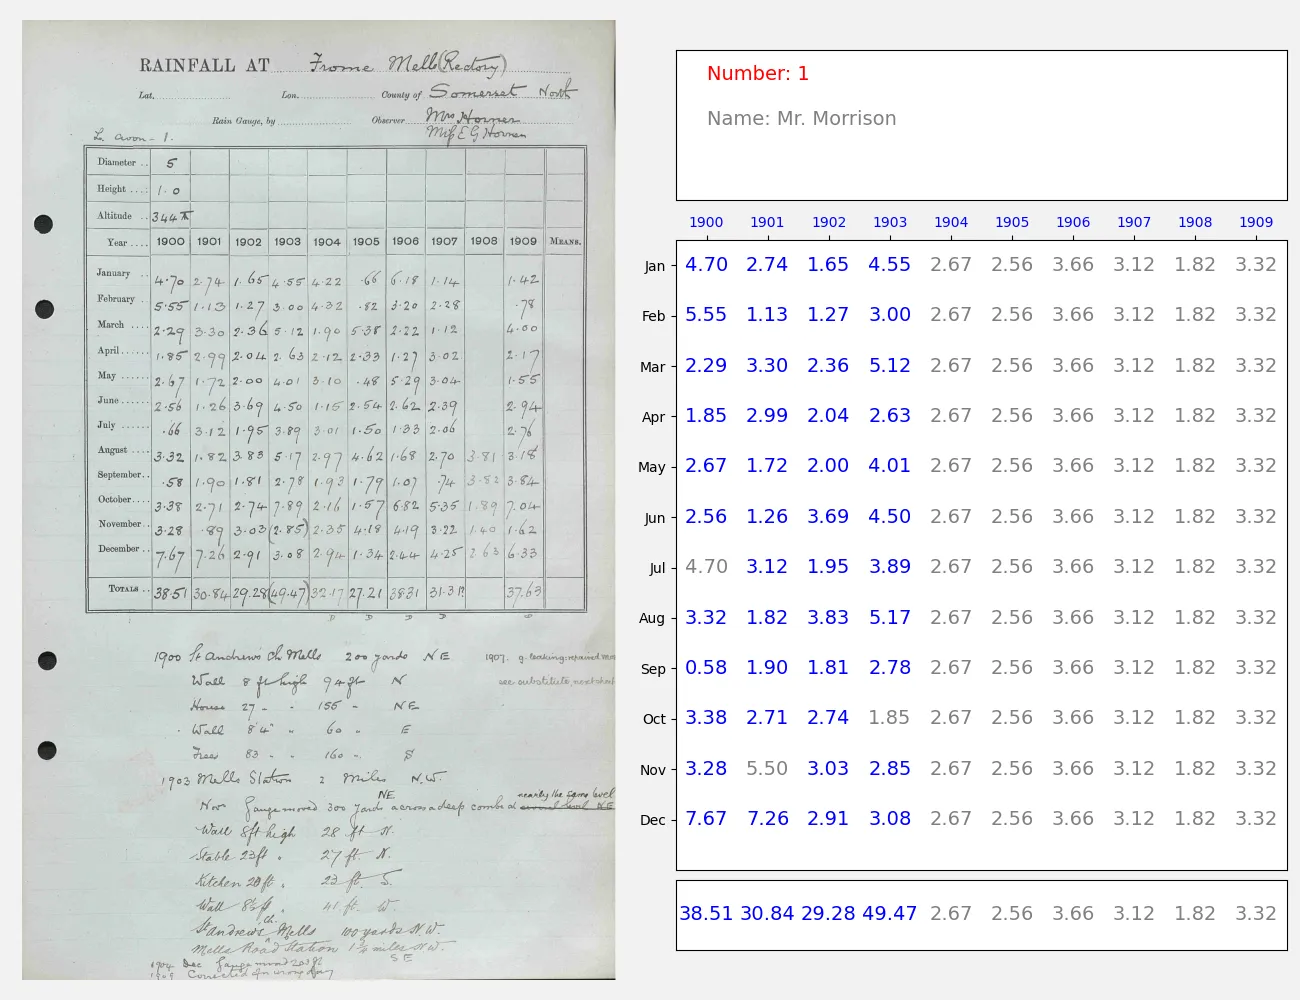 RAINFALL AT Frome Mells (Rectory)
Lat. Lon. County of Somerset North
Rain Gauge, by Observer Mrs Horner
Miss E G Horner
Diameter .. 5
Height .... 1.0
Altitude .. 344 ft
Year .... 1900 1901 1902 1903 1904 1905 1906 1907 1908 1909 MEANS.
January .. 4.70 2.74 1.65 4.55 4.22 .66 6.18 1.14 1.42
February . 5.55 1.13 1.27 3.00 4.32 .82 3.20 2.28 .78
March .... 2.29 3.30 2.36 5.12 1.90 5.38 2.22 1.12 4.00
April...... 1.85 2.99 2.04 2.63 2.12 2.33 1.27 3.02 2.17
May ...... 2.67 1.72 2.00 4.01 3.10 .48 5.29 3.04 1.55
June ...... 2.56 1.26 3.69 4.50 1.15 2.54 2.62 2.39 2.94
July ...... .66 3.12 1.95 3.89 3.01 1.50 1.33 2.06 2.76
August .... 3.32 1.82 3.83 5.17 2.97 4.62 1.68 2.70 3.81 3.18
September.. .58 1.90 1.81 2.78 1.93 1.79 1.07 .74 3.82 3.84
October.... 3.38 2.71 2.74 7.89 2.16 1.57 6.82 5.35 1.89 7.04
November.. 3.28 .89 3.03 (2.85) 2.35 4.18 4.19 3.22 1.40 1.62
December .. 7.67 7.26 2.91 3.08 2.94 1.34 2.44 4.25 2.63 6.33
TOTALS .. 38.51 30.84 29.28 (49.47) 32.17 27.21 38.31 31.31 37.63
D D D D
1900 St Andrews Ch Mells 200 yards NE 1907. g. leaking: repaired
Wall 8 ft high 94 ft N see substitute, next sheet
House 27 " " 155 " NE
Wall 8'4" " 60 " E
Trees 83 " " 160 " S
1903 Mells Station 2 Miles N.W.
NE nearly the same level
Nov Gauge moved 300 yards across a deep combe
Wall 8ft high 28 ft N.
Stable 23ft " 27 ft. N.
Kitchen 20ft " 23 ft. S.
Wall 8½ft " 41 ft. W.
St Andrews Ch. Mells 100 yards N.W.
Mells Road Station 1½ miles N.W.
S E
1904 Dec Gauge moved 20 ft
Corrected for wrong
Number: 1
Name: Mr. Morrison
1900 1901 1902 1903 1904 1905 1906 1907 1908 1909
Jan 4.70 2.74 1.65 4.55 2.67 2.56 3.66 3.12 1.82 3.32
Feb 5.55 1.13 1.27 3.00 2.67 2.56 3.66 3.12 1.82 3.32
Mar 2.29 3.30 2.36 5.12 2.67 2.56 3.66 3.12 1.82 3.32
Apr 1.85 2.99 2.04 2.63 2.67 2.56 3.66 3.12 1.82 3.32
May 2.67 1.72 2.00 4.01 2.67 2.56 3.66 3.12 1.82 3.32
Jun 2.56 1.26 3.69 4.50 2.67 2.56 3.66 3.12 1.82 3.32
Jul 4.70 3.12 1.95 3.89 2.67 2.56 3.66 3.12 1.82 3.32
Aug 3.32 1.82 3.83 5.17 2.67 2.56 3.66 3.12 1.82 3.32
Sep 0.58 1.90 1.81 2.78 2.67 2.56 3.66 3.12 1.82 3.32
Oct 3.38 2.71 2.74 1.85 2.67 2.56 3.66 3.12 1.82 3.32
Nov 3.28 5.50 3.03 2.85 2.67 2.56 3.66 3.12 1.82 3.32
Dec 7.67 7.26 2.91 3.08 2.67 2.56 3.66 3.12 1.82 3.32
38.51 30.84 29.28 49.47 2.67 2.56 3.66 3.12 1.82 3.32